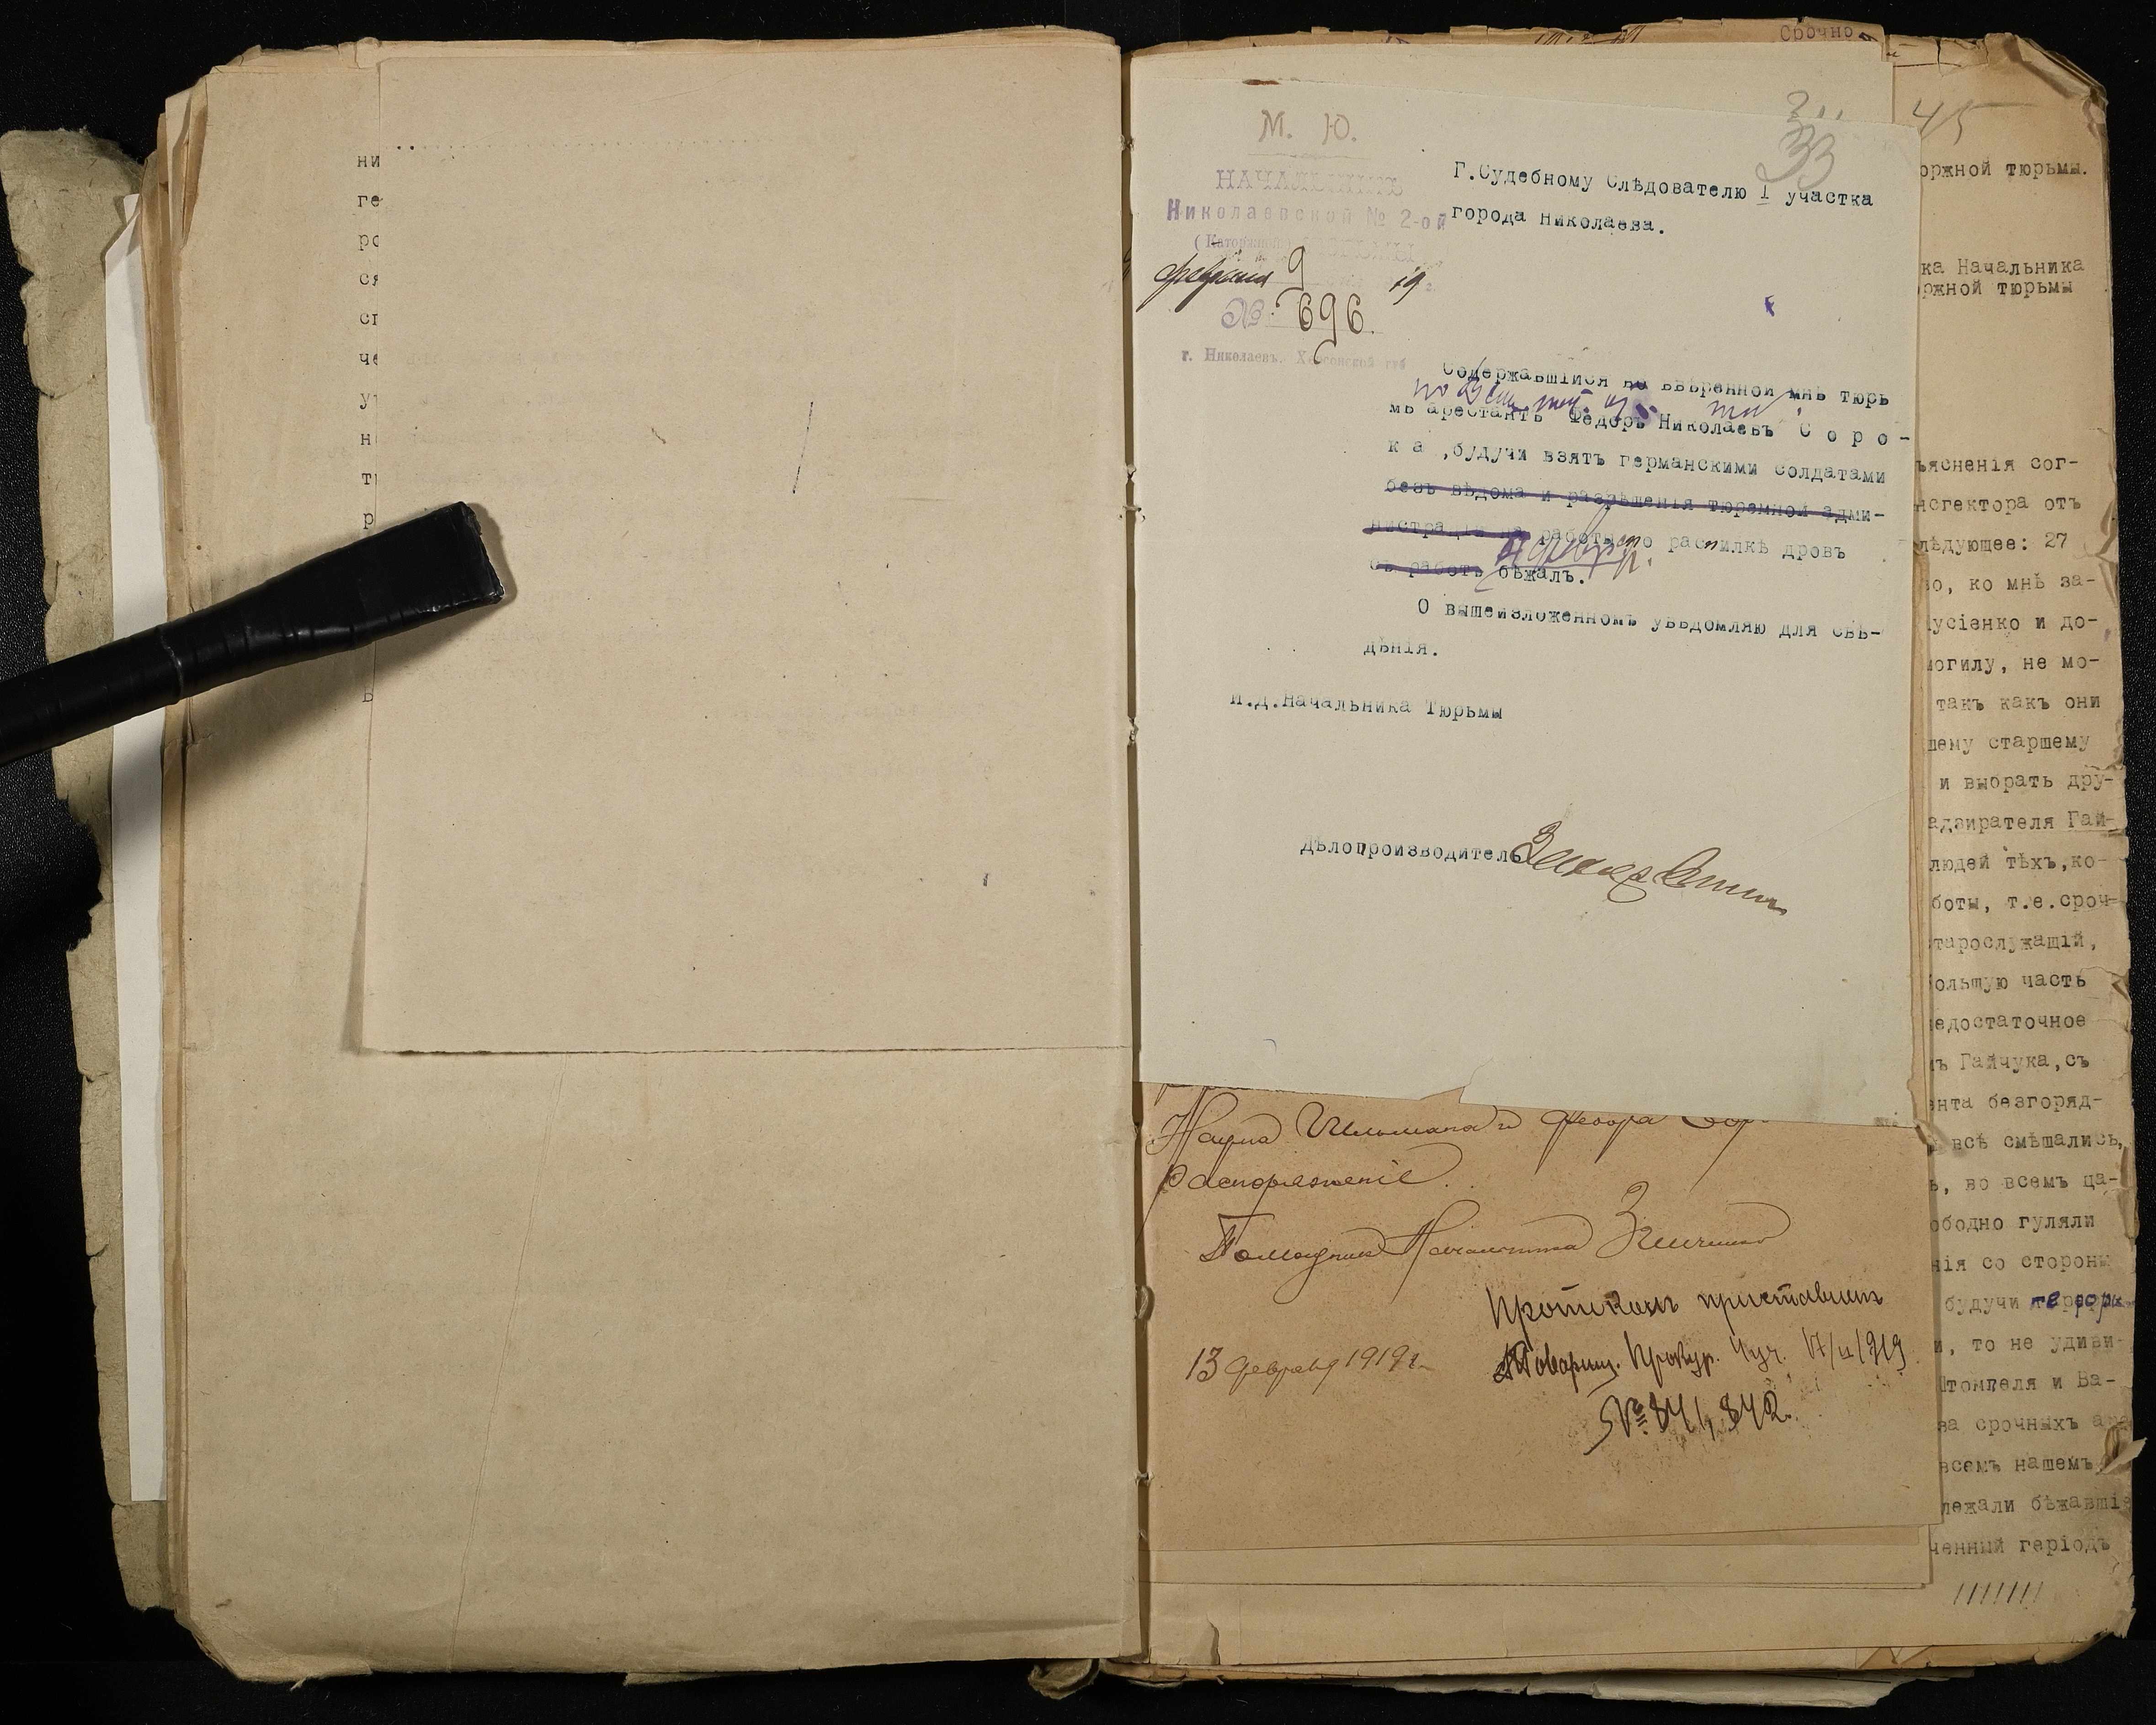 ни
ге
ро
ся
сп
че
н
Срочно
М. Ю.
НАЧАЛЬНИКЪ
Николаевской № 2-ой
(Каторжной) ТЮРЬМЫ
февраля 9 19
№ 696.
г. Николаевъ, Херсонской губ
33
Г.Судебному Слѣдователю I участка
города Николаева.
Содержавшійся во ввѣренной мнѣ тюрь
мѣ арестантъ Федоръ Николаевъ С о р о -
к а ,будучи взятъ германскими солдатами
безъ вѣдома и разрѣшенія тюремной адми-
нистраціи на работы по распилкѣ дровъ
съ работъ бѣжалъ.
О вышеизложенномъ увѣдомляю для свѣ-
дѣнія.
И.Д.Начальника Тюрьмы
Дѣлопроизводитель
Наума и Федора
распоряженіе.
Помощникъ Начальника
13 февраля 1919 г.
Протоколъ
Товарищ. Прокур. 4 уч. 17/II 1919
№ 841, 842.
45
оржной тюрьмы.
ка Начальника
ржной тюрьмы
ъясненія сог-
нспектора отъ
лѣдующее: 27
во, ко мнѣ за-
усіенко и до-
могилу, не мо-
такъ какъ они
шему старшему
и выбрать дру-
адзирателя Гай-
людей тѣхъ,ко-
боты, т.е.сроч-
тарослужащій,
ольшую часть
едостаточное
ъ Гайчука,съ
ента безпоряд-
всѣ смѣшались,
ь, во всемъ ца-
ободно гуляли
нія со стороны
будучи
и, то не удиви-
Штомпеля и Ва-
за срочныхъ
всемъ нашемъ
лежали бѣжавшіе
ченный періодъ